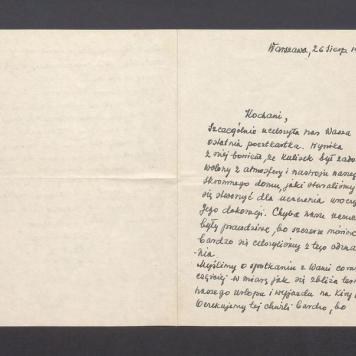 Warszawa, 26 sierp. 19
Kochani,
Szczególnie ucieszyła nas Wasza
ostatnia pocztówka. Wynika
z niej bowiem, że Kulisek był zado-
wolony z atmosfery i nastroju naszego
skromnego domu, jaki staraliśmy
się stworzyć dla uczczenia uroczy
Jego dekoracji. Chyba nasze
były prawdziwe, bo szczerze mówiąc
bardzo się cieszyliśmy z tego odzna-
nia.
Myślimy o spotkaniu z Wami coraz
częściej w miarę jak się zbliża
naszego urlopu i wyjazdu na
Oczekujemy tej chwili bardzo, bo